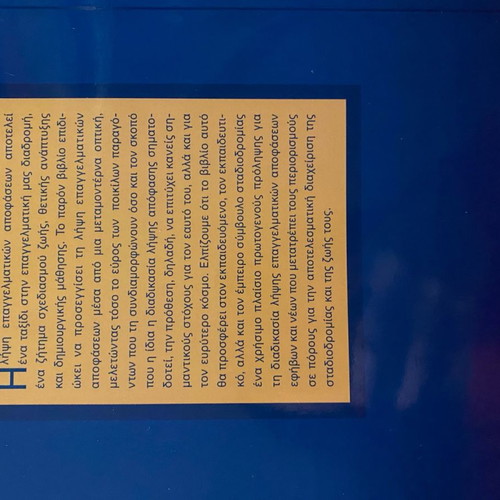 Η λήψη επαγγελματικών αποφάσεων αποτελεί
ένα ταξίδι στην επαγγελματική μας διαδρομή,
ένα ζήτημα σχεδιασμού ζωής, θετικής ανάπτυξης
και δημιουργικής μάθησης. Το παρόν βιβλίο επιδι-
ώκει να προσεγγίσει τη λήψη επαγγελματικών
αποφάσεων μέσα από μια μεταμοντέρνα οπτική,
μελετώντας τόσο το εύρος των ποικίλων παραγό-
ντων που τη συνδιαμορφώνουν όσο και τον σκοπό
που η ίδια η διαδικασία λήψης απόφασης σηματο-
δοτεί, την πρόθεση, δηλαδή, να επιτύχει κανείς ση-
μαντικούς στόχους για τον εαυτό του, αλλά και για
τον ευρύτερο κόσμο. Ελπίζουμε ότι το βιβλίο αυτό
θα προσφέρει στον εκπαιδευόμενο, τον εκπαιδευτι-
κό, αλλά και τον έμπειρο σύμβουλο σταδιοδρομίας
ένα χρήσιμο πλαίσιο πρωτογενούς πρόληψης για
τη διαδικασία λήψης επαγγελματικών αποφάσεων
εφήβων και νέων που μετατρέπει τους περιορισμούς
σε πόρους για την αποτελεσματική διαχείριση της
σταδιοδρομίας και της ζωής τους.